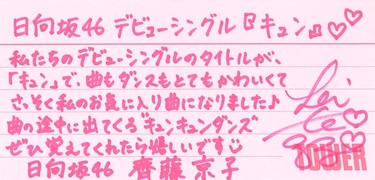 日向坂46 デビューシングル『キュン』♡♡
私たちのデビューシングルのタイトルが、
「キュン」で、曲もダンスもとてもかわいくて
さっそく私のお気に入り曲になりました♪
曲の途中に出てくる"キュンキュンダンズ"
ぜひ覚えてくれたら嬉しいです☺
日向坂46 齊藤京子
TOWER